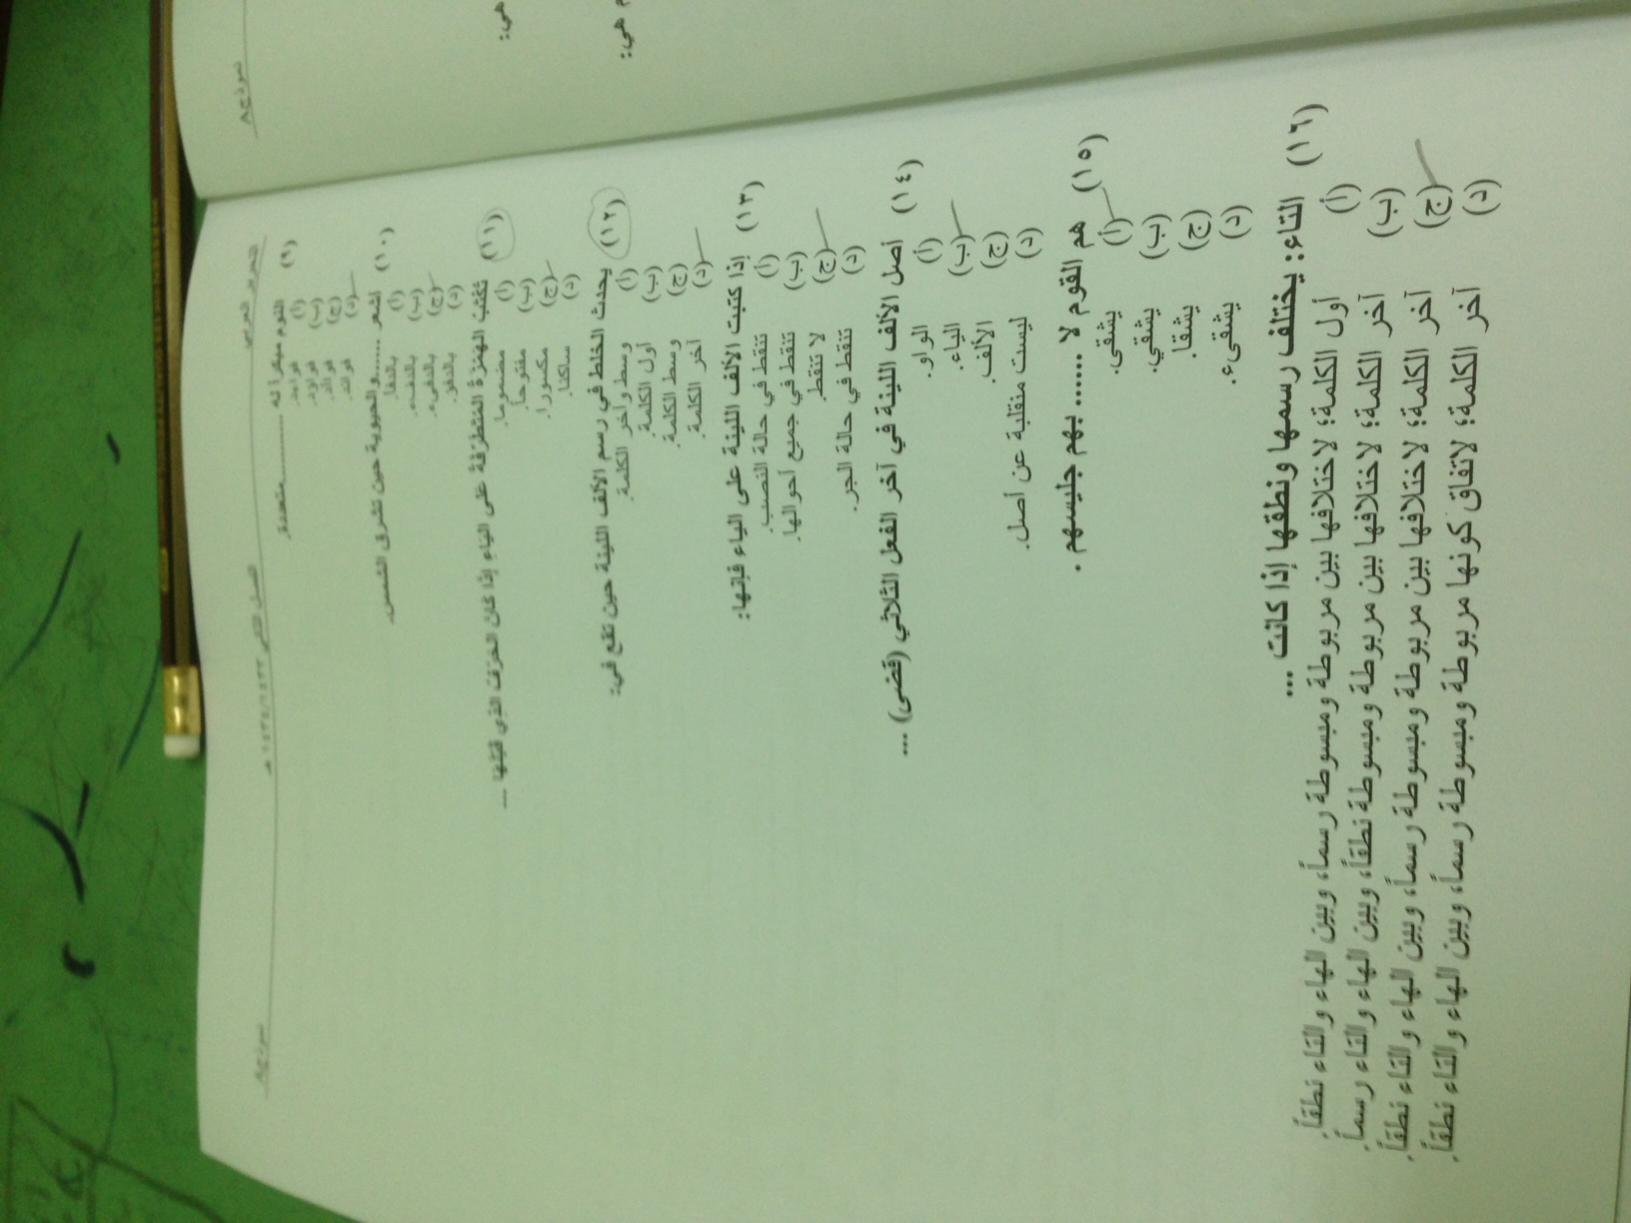 التحرير العربي
الفصل الثاني
نموذج A
(٩) النوم مبكرا له ............ متعددة.
(أ) فوايد.
(ب) فواؤد.
(ج) فوائد.
(د) فوائد.
(١٠) أشعر ........ والحيوية حين تشرق الشمس.
(أ) بالدفا.
(ب) بالدفء.
(ج) بالدفىء.
(د) بالدفؤ.
(١١) تكتب الهمزة المتطرفة على الياء إذا كان الحرف الذي قبلها ...
(أ) مضموما.
(ب) مفتوحاً.
(ج) مكسورا.
(د) ساكنا.
(١٢) يحدث الخلط في رسم الألف اللينة حين تقع في:
(أ) وسط وآخر الكلمة.
(ب) أول الكلمة.
(ج) وسط الكلمة.
(د) آخر الكلمة.
(١٣) إذا كتبت الألف اللينة على الياء فإنها:
(أ) تنقط في حالة النصب.
(ب) تنقط في جميع أحوالها.
(ج) لا تنقط.
(د) تنقط في حالة الجر.
(١٤) أصل الألف اللينة في آخر الفعل الثلاثي (قضى) ...
(أ) الواو.
(ب) الياء.
(ج) الألف.
(د) ليست منقلبة عن أصل.
(١٥) هم القوم لا ...... بهم جليسهم .
(أ) يشقى.
(ب) يشقي.
(ج) يشقا.
(د) يشقىء.
(١٦) التاء: يختلف رسمها ونطقها إذا كانت ...
(أ) أول الكلمة؛ لاختلافها بين مربوطة ومبسوطة رسماً، وبين الهاء والتاء نطقاً.
(ب) آخر الكلمة؛ لاختلافها بين مربوطة ومبسوطة نطقاً، وبين الهاء والتاء رسماً.
(ج) آخر الكلمة؛ لاختلافها بين مربوطة ومبسوطة رسماً، وبين الهاء والتاء نطقاً.
(د) آخر الكلمة؛ لاتفاق كونها مربوطة ومبسوطة رسماً، وبين الهاء والتاء نطقاً.
نموذج A
هي:
م هي: